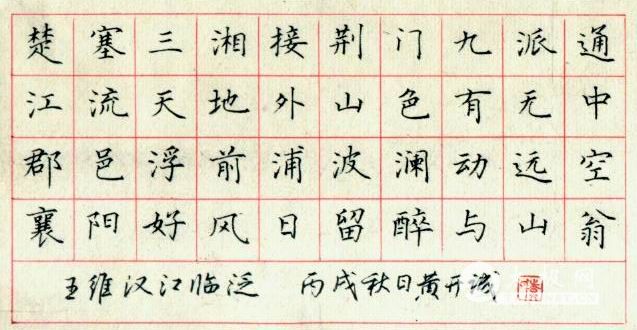 楚塞三湘接荆门九派通
江流天地外山色有无中
郡邑浮前浦波澜动远空
襄阳好风日留醉与山翁
王维汉江临泛 丙戌秋日黄开